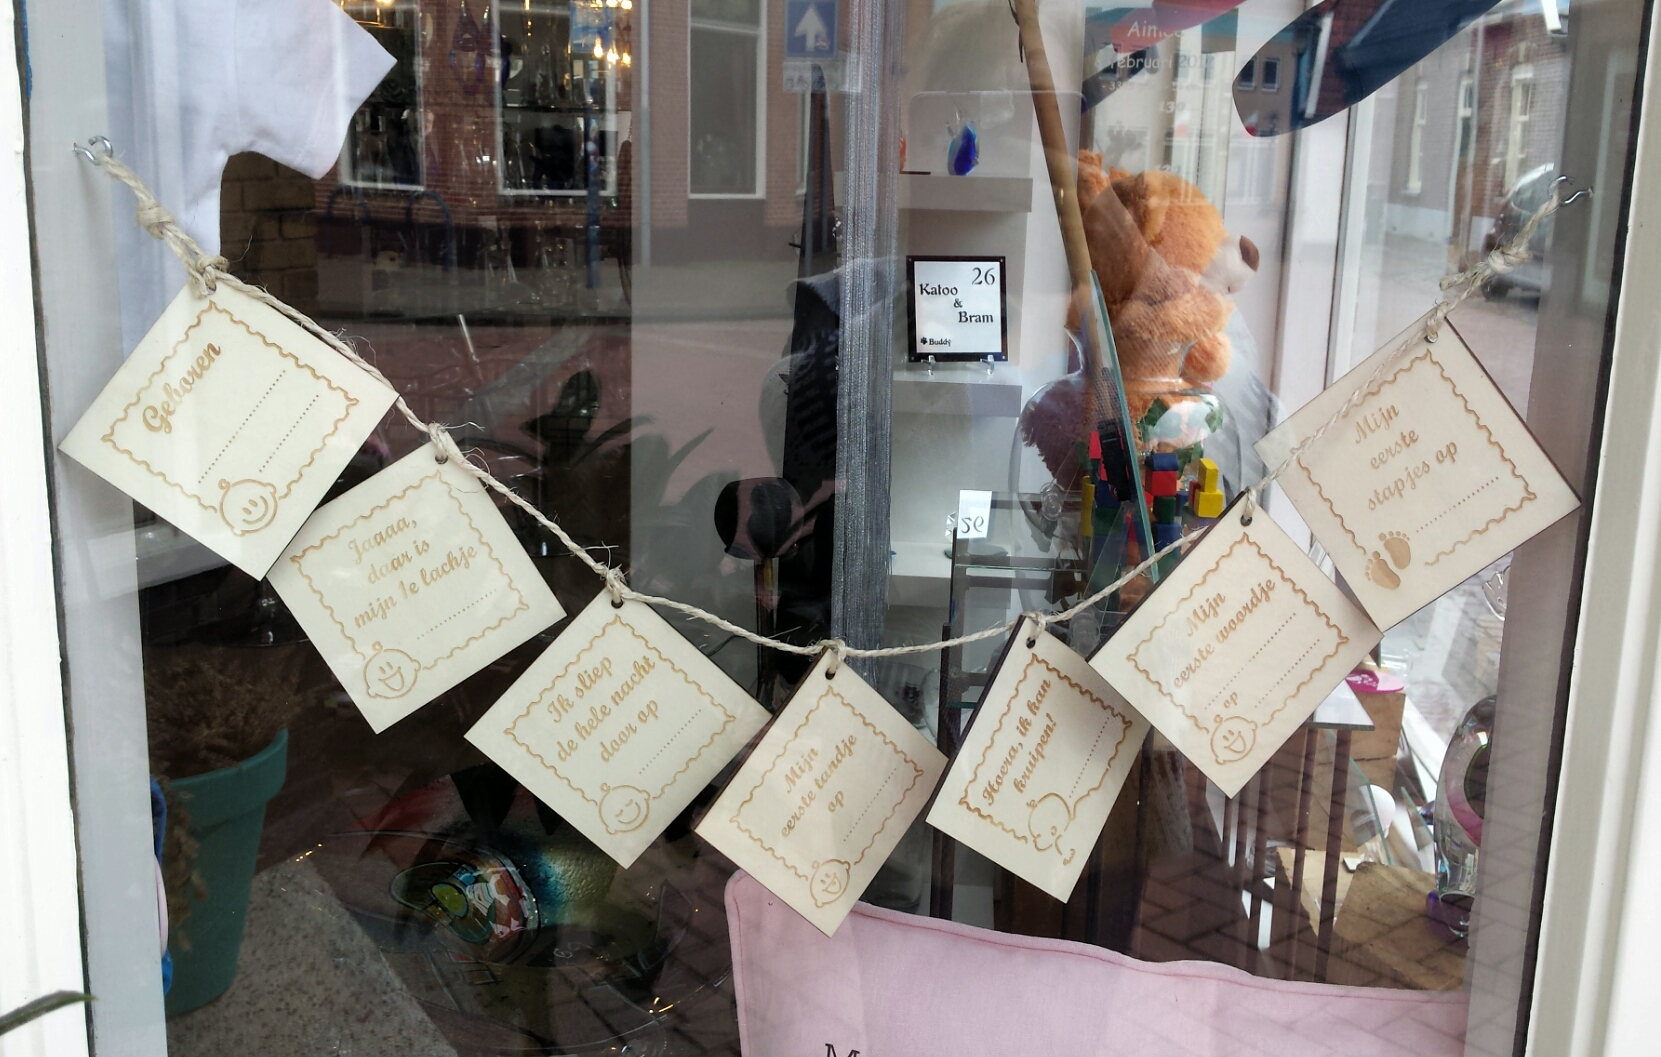 Geboren
Jaaaa,
daar is
mijn 1e lachje
Ik sliep
de hele nacht
door op
Mijn
eerste tandje
op
Hoera, ik kan
kruipen!
Mijn
eerste woordje
op
Mijn
eerste
stapjes op
26
Katoo
&
Bram
Buddy
26
februari